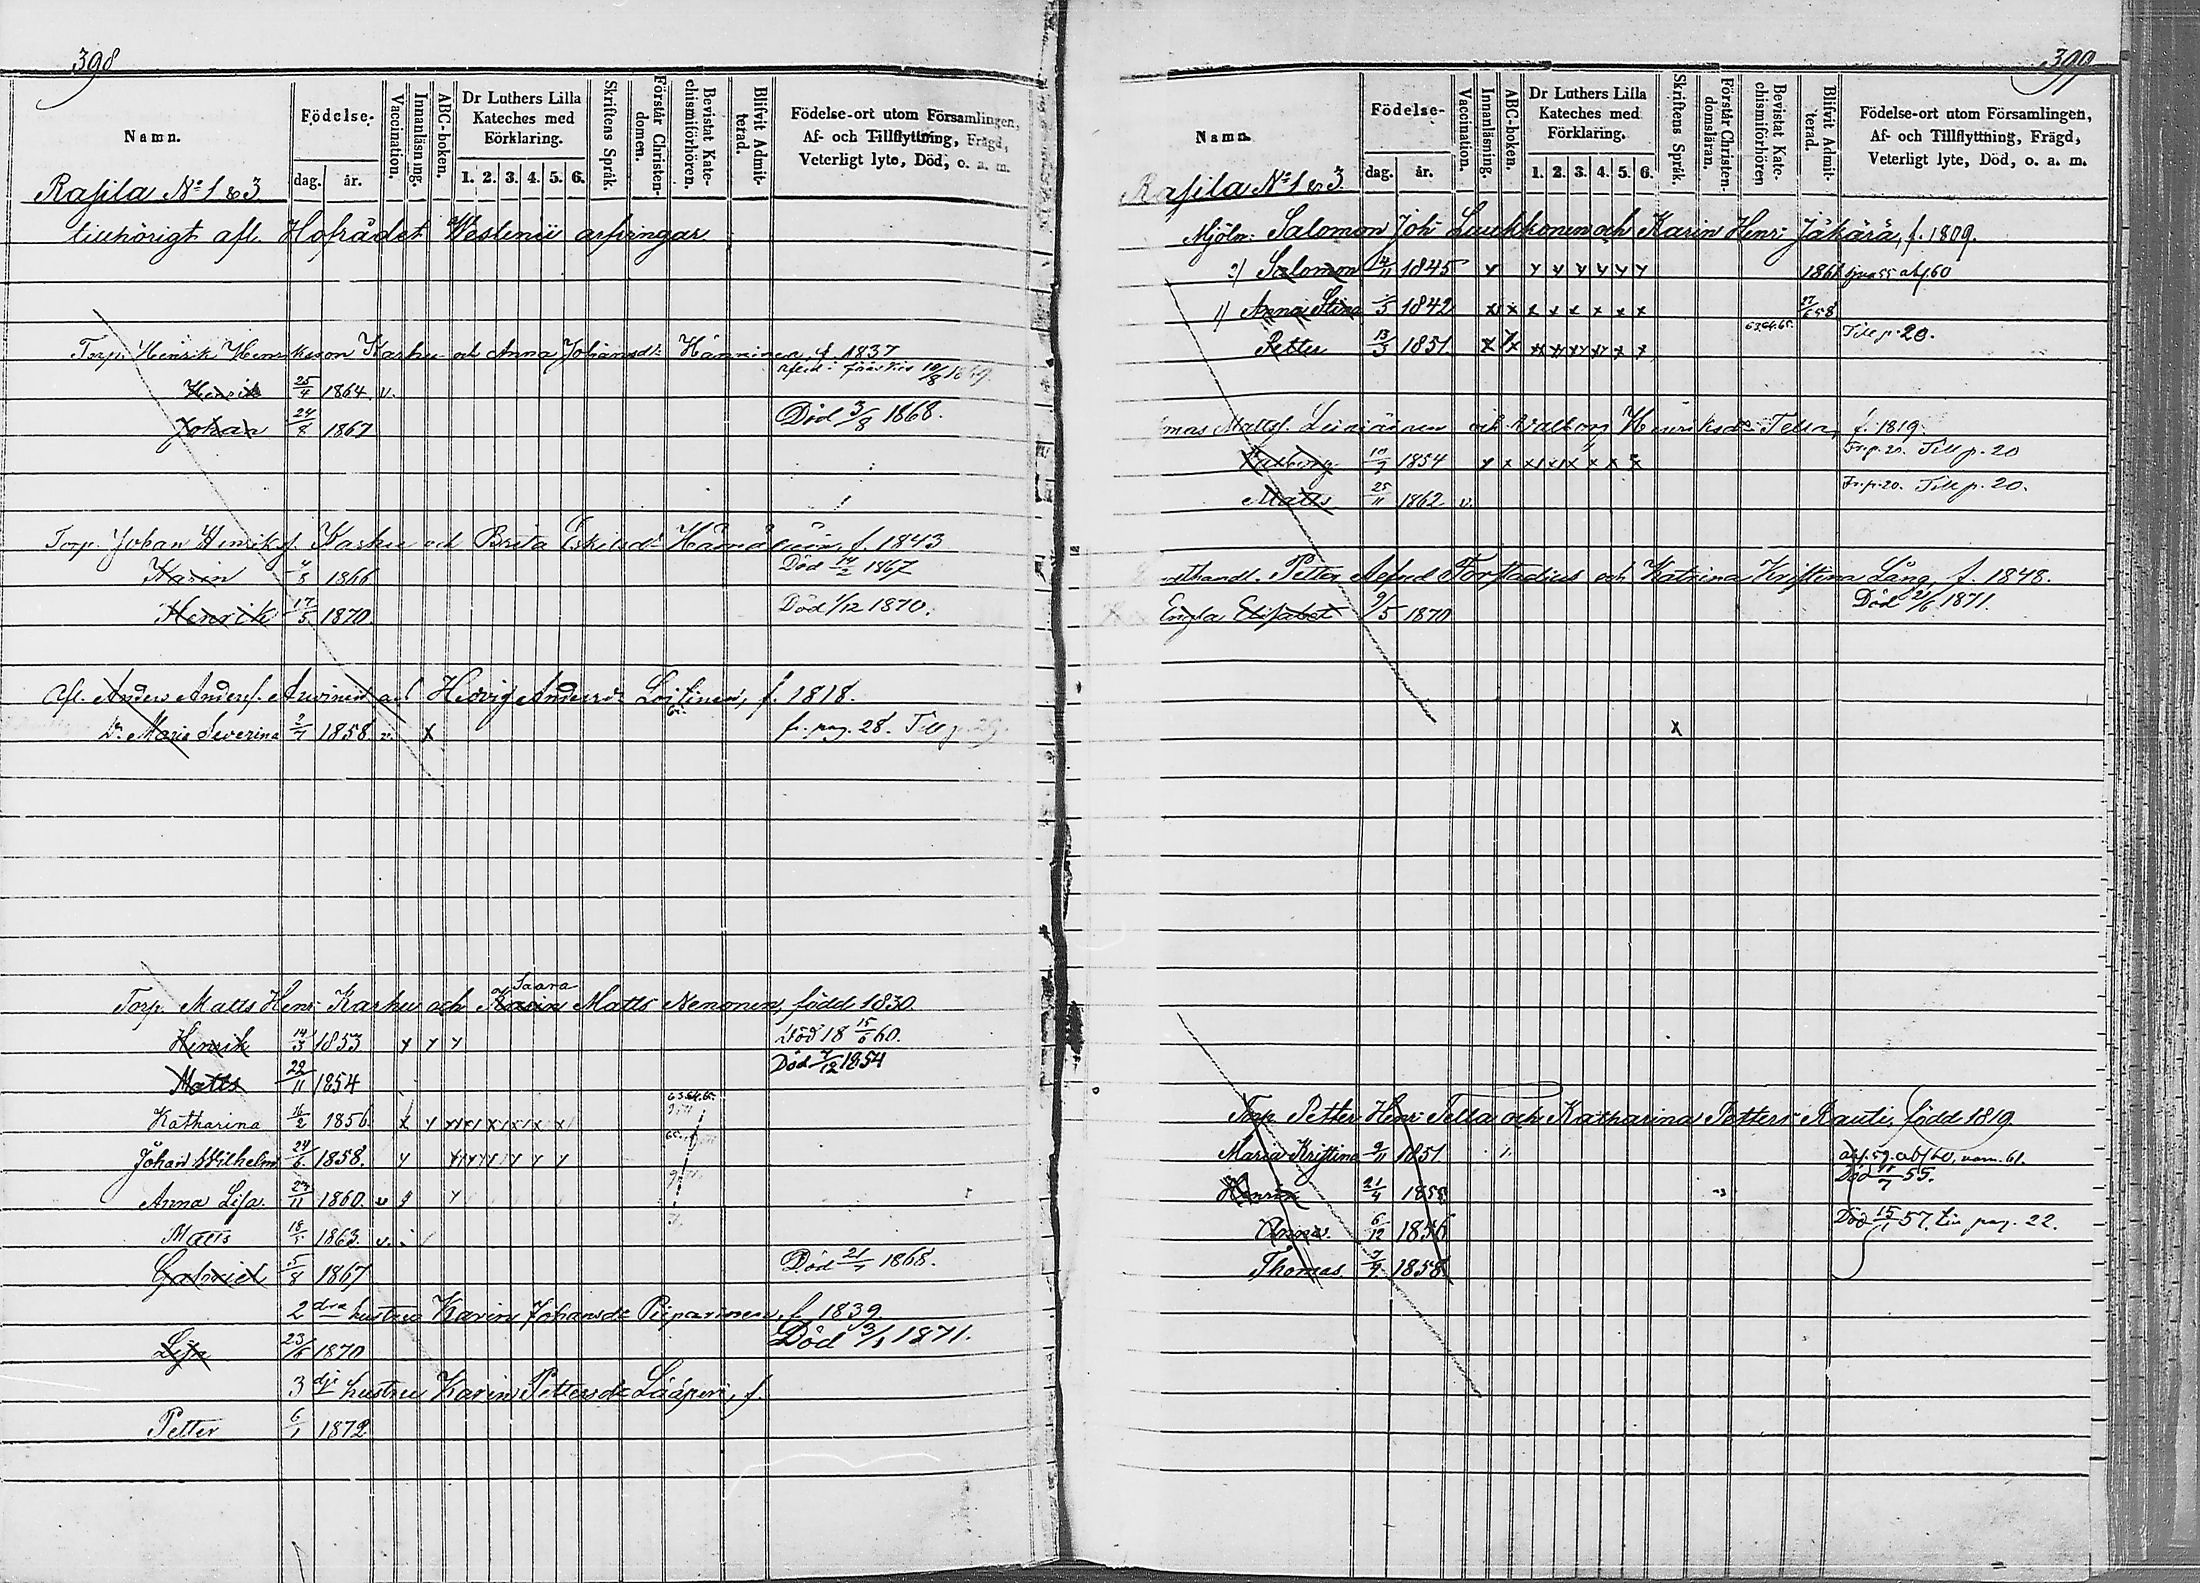 398
Namn. Födelse- dag. år. Vaccination. Innanläsning. ABC-boken. Dr Luthers Lilla Kateches med Förklaring. 1. 2. 3. 4. 5. 6. Skriftens Språk. Förstår Christendomen. Bevistat Katechismiförhören. Blifvit Admitterad. Födelse-ort utom Församlingen, Af- och Tillflyttning, Frägd, Veterligt lyte, Död, o. a. m.
Rasila No 1 & 3
tillhörigt afl. Hofrådet Weslenii arfvingar
Torp. Henrik Henriksson Karhu och Anna Johansdr Hänninen, f. 1837
Henrik 25/4 1864 v. 10/8 1869
Johan 24/8 1867 Död 3/8 1868.
Torp. Johan Henriks. Karhu och Brita Eskilsdr f. 1843
Karin 4/8 1866 Död 14/2 1867
Henrik 17/5 1870 Död 1/12 1870.
Afl. Anders Anders. Arvinen och Hedvig Andersdr Loikinen, f. 1818.
Dr. Maria Severina 2/7 1858 v x fr. pag. 28. Till p. 29.
Torp. Matts Henr: Karhu och Karin Saara Matts Nenonen, född 1830.
Henrik 14/3 1853 y y y Död 18 15/6 60.
Matts 22/11 1854 Död 7/12 1854
63.64.65.
Katharina 16/2 1856.
Johan Wilhelm 24/6 1858.
Anna Lisa. 23/11 1860. v
Matts 18/1 1863. v.
Gabriel 5/8 1867 Död 21/7 1868.
2 dra hustru Karin Johansdr Piiparinen, f. 1839
Lisa 23/6 1870 Död 3/1 1871.
3 dje hustru Karin Pettersdr Lääperi, f.
Petter 6/1 1872
399
Namn. Födelse- dag. år. Vaccination. Innanläsning. ABC-boken. Dr Luthers Lilla Kateches med Förklaring. 1. 2. 3. 4. 5. 6. Skriftens Språk. Förstår Christendomsläran. Bevistat Katechismiförhören Blifvit Admitterad. Födelse-ort utom Församlingen, Af- och Tillflyttning, Frägd, Veterligt lyte, Död, o. a. m.
Rasila No 1 & 3.
Mjöln. Salomon Joh: Laukkonen och Karin Henr: Jäkärä, f. 1809.
2) Salomon 1845 y y y y y y y 1861
1) Anna Stina 1842 x x x x x x x x 27/6 58
Petter 13/3 1851 63.64.65. Till p. 20.
Matts. Leiniäinen och Valborg Henriksdr Tella, f. 1819.
Valborg 10/7 1854 Fr. p. 20. Till p. 20
Matts 25/11 1862 v. Fr. p. 20. Till p. 20.
Petter Alfred Forstadius och Katrina Kristina Lång, f. 1848.
Engla Elisabet 9/5 1870 Död 21/6 1871.
x
Torp. Petter Henr: Tella och Katharina Petters Rauti, född 1819
Maria Kristina 9/11 1851
Henrik 21/4 1855 Död 55.
Anna. 6/12 1856 Död 15/1 57. pag. 22.
Thomas 7/7 1858